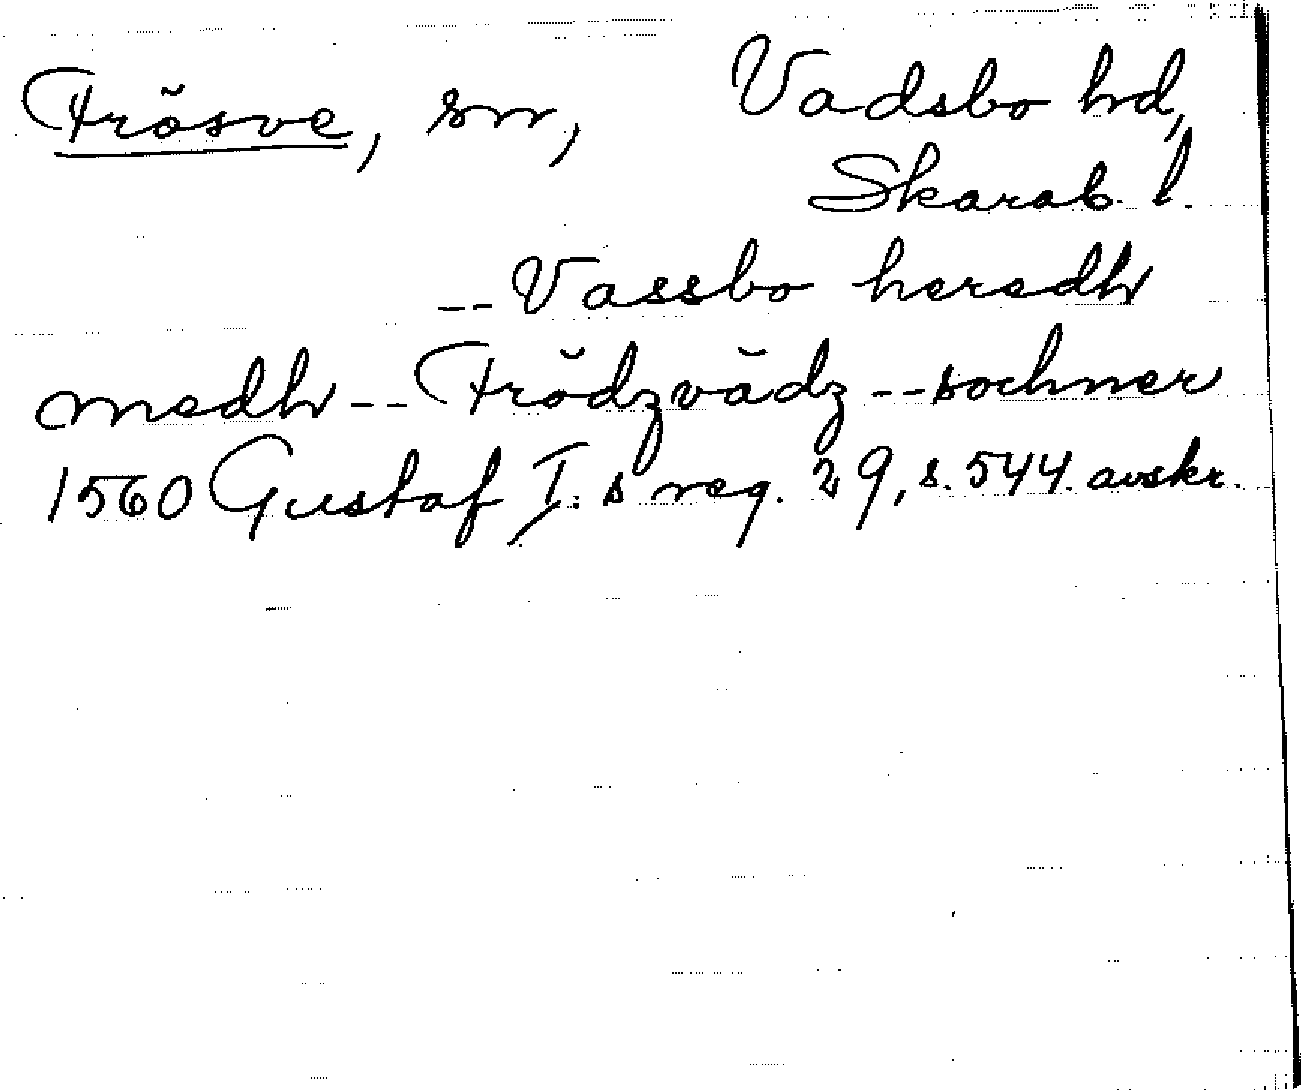 Frösve, sn, Vadsbo hd,
Skarab. l.
-- Vassbo heredh
medh -- Frödzvädz -- sochner
1560 Gustaf I:s reg. 29, s. 544. avskr.